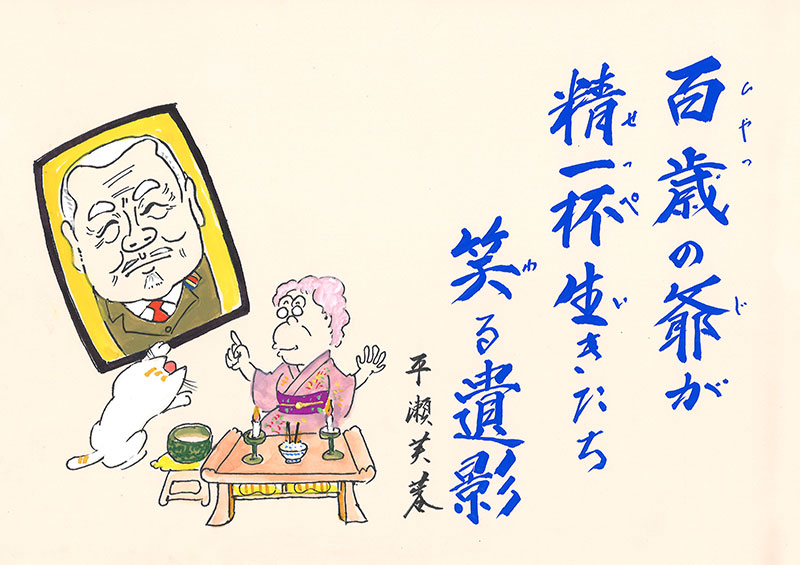 百歳の爺が
ひやつ じ
精一杯生きたち
せっぺ い
笑る遺影
わ
平瀬芙蓉